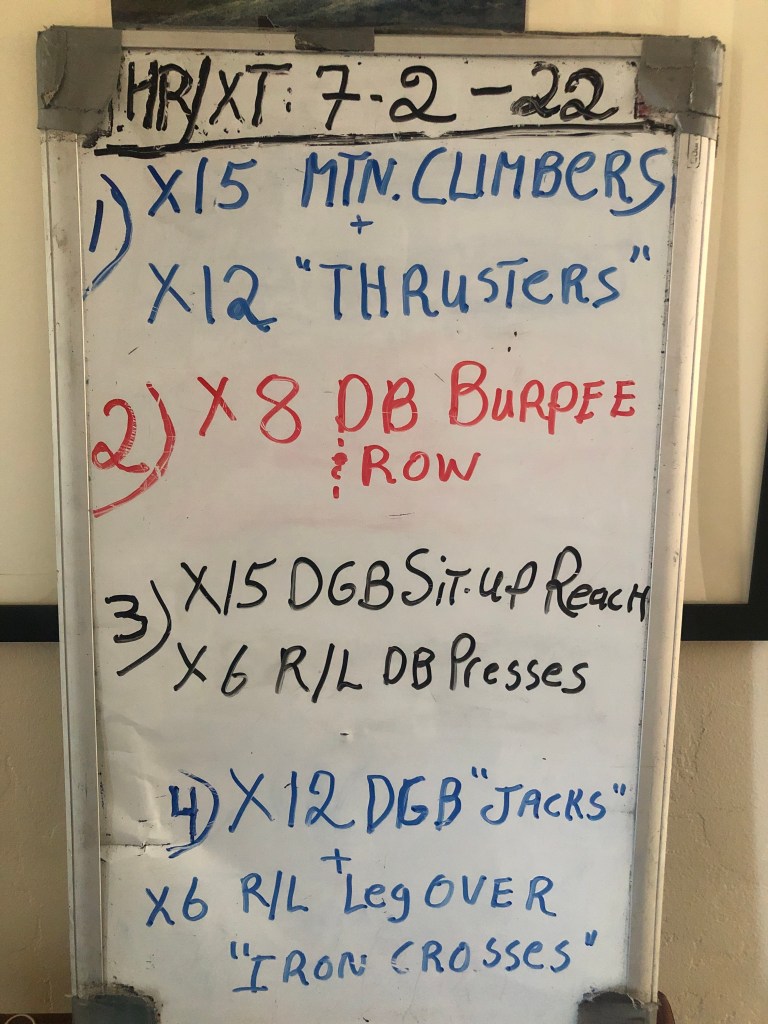 HR/XT: 7-2-22
1) X15 MTN. CLIMBERS
+
X12 "THRUSTERS"
2) X 8 DB BURPEE
& ROW
3) X15 DGB SiT-UP REACH
X 6 R/L DB Presses
4) X12 DGB "JACKS"
+
X6 R/L Leg OVER
"IRON CROSSES"